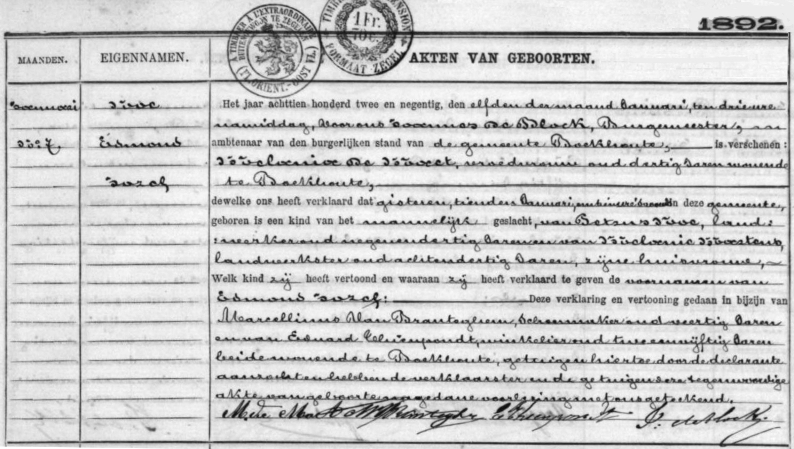 1892.
MAANDEN.
EIGENNAMEN.
AKTEN VAN GEBOORTEN.
1 Fr.
FORMAAT ZEGEL
Januari
Edmond
Het jaar achttien honderd twee en negentig, den elfden der maand Januari, ten drie ure
namiddag, voor ons Joannes De Block, Burgemeester,
ambtenaar van den burgerlijken stand van de gemeente Boekhoute, is verschenen:
oud dertig Jaren wonende
te Boekhoute,
dewelke ons heeft verklaard dat gisteren, tienden Januari, in deze gemeente,
geboren is een kind van het mannelijk geslacht, van Petrus
oud negenendertig Jaren en van
landwerkster oud achtendertig Jaren, zijne huisvrouw,
Welk kind zij heeft vertoond en waaraan zij heeft verklaard te geven de voornamen van
Edmond Deze verklaring en vertooning gedaan in bijzijn van
Marcellinus Van Branteghem, Schoenmaker oud veertig Jaren
en van Eduard winkelier oud twee en vijftig Jaren
beide wonende te Boekhoute, getuigen hiertoe door de declarante
aanzocht en hebben de verklaarster en de getuigen deze tegenwoordige
akte van geboorte na gedane voorlezing met ons geteekend.